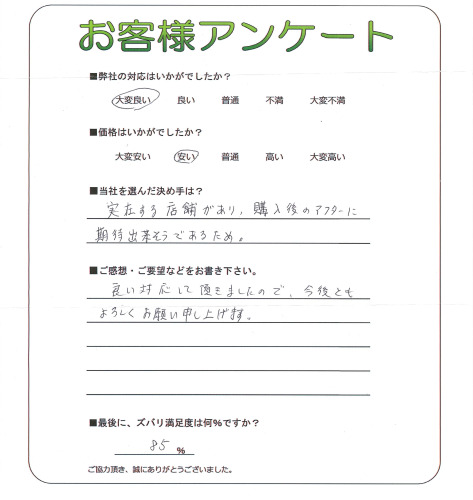 お客様アンケート
■弊社の対応はいかがでしたか？
大変良い 良い 普通 不満 大変不満
■価格はいかがでしたか？
大変安い 安い 普通 高い 大変高い
■当社を選んだ決め手は？
実在する店舗があり、購入後のアフターに
期待出来そうであるため。
■ご感想・ご要望などをお書き下さい。
良い対応して頂きましたので、今後とも
よろしくお願い申し上げます。
■最後に、ズバリ満足度は何%ですか？
85 %
ご協力頂き、誠にありがとうございました。